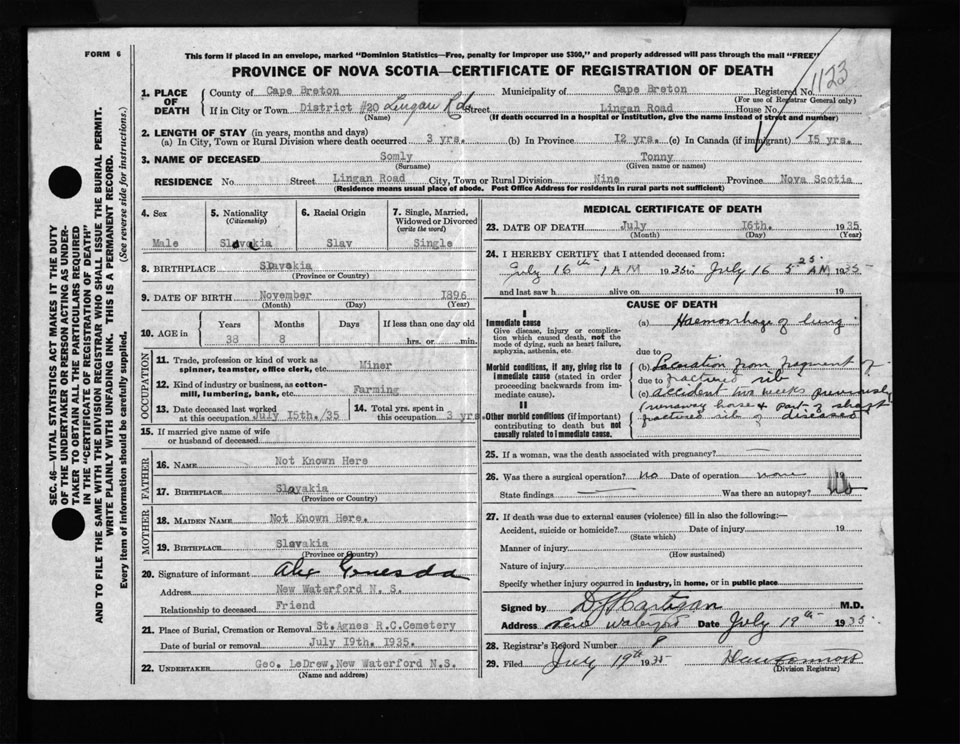 FORM 6
This form if placed in an envelope, marked "Dominion Statistics—Free, penalty for improper use $300," and properly addressed will pass through the mail "FREE"
PROVINCE OF NOVA SCOTIA—CERTIFICATE OF REGISTRATION OF DEATH
1123
SEC. 46—VITAL STATISTICS ACT MAKES IT THE DUTY
OF THE UNDERTAKER OR PERSON ACTING AS UNDER-
TAKER TO OBTAIN ALL THE PARTICULARS REQUIRED
IN THE "CERTIFICATE OF REGISTRATION OF DEATH"
AND TO FILE THE SAME WITH THE DIVISION REGISTRAR WHO SHALL ISSUE THE BURIAL PERMIT.
WRITE PLAINLY WITH UNFADING INK. THIS IS A PERMANENT RECORD.
Every item of information should be carefully supplied. (See reverse side for instructions.)
1. PLACE OF DEATH
County of Cape Breton Municipality of Cape Breton Registered No.
(For use of Registrar General only)
If in City or Town District #20 Lingan Rd Street Lingan Road House No.
(Name) (If death occurred in a hospital or institution, give the name instead of street and number)
2. LENGTH OF STAY (in years, months and days)
(a) In City, Town or Rural Division where death occurred 3 yrs. (b) In Province 12 yrs. (c) In Canada (if immigrant) 15 yrs.
3. NAME OF DECEASED Somly Tonny
(Surname) (Given name or names)
RESIDENCE No Street Lingan Road City, Town or Rural Division Nine Province Nova Scotia
(Residence means usual place of abode. Post Office Address for residents in rural parts not sufficient)
4. Sex
Male
5. Nationality
(Citizenship)
Slovakia
6. Racial Origin
Slav
7. Single, Married, Widowed or Divorced
(write the word)
Single
8. BIRTHPLACE Slovakia
(Province or Country)
9. DATE OF BIRTH November 1896
(Month) (Day) (Year)
10. AGE in Years Months Days If less than one day old
38 8 hrs. or min.
OCCUPATION
11. Trade, profession or kind of work as
spinner, teamster, office clerk, etc. Miner
12. Kind of industry or business, as cotton-
mill, lumbering, bank, etc. Farming
13. Date deceased last worked
at this occupation July 15th./35
14. Total yrs. spent in
this occupation 3 yrs.
15. If married give name of wife
or husband of deceased
FATHER
16. NAME Not Known Here
17. BIRTHPLACE Slovakia
(Province or Country)
MOTHER
18. MAIDEN NAME Not Known Here.
19. BIRTHPLACE Slovakia
(Province or Country)
20. Signature of informant
Address New Waterford N. S.
Relationship to deceased Friend
21. Place of Burial, Cremation or Removal St.Agnes R.C.Cemetery
Date of burial or removal July 19th. 1935.
22. UNDERTAKER Geo. LeDrew,New Waterford N.S.
(Name and address)
MEDICAL CERTIFICATE OF DEATH
23. DATE OF DEATH July 16th. 1935
(Month) (Day) (Year)
24. I HEREBY CERTIFY that I attended deceased from:
July 16th 1 AM 1935 to July 16 5 25 AM 1935
and last saw h alive on 19
CAUSE OF DEATH
I
Immediate cause
Give disease, injury or complica-
tion which caused death, not the
mode of dying, such as heart failure,
asphyxia, asthenia, etc
(a) Haemorrhage of lung
due to
Morbid conditions, if any, giving rise to
immediate cause (stated in order
proceeding backwards from im-
mediate cause).
(b) Laceration from fragment of
due to fractured rib
(c) accident two weeks previously
(runaway horse & part of shaft
fractured rib of deceased
II
Other morbid conditions (if important)
contributing to death but not
causally related to immediate cause.
25. If a woman, was the death associated with pregnancy?
26. Was there a surgical operation? no Date of operation none 19
State findings Was there an autopsy? no
27. If death was due to external causes (violence) fill in also the following:—
Accident, suicide or homicide? Date of injury 19
(State which)
Manner of injury
(How sustained)
Nature of injury
Specify whether injury occurred in industry, in home, or in public place
Signed by D J Hartigan M.D.
Address New Waterford Date July 19th 1935
28. Registrar's Record Number 8
29. Filed July 19th 1935
(Division Registrar)